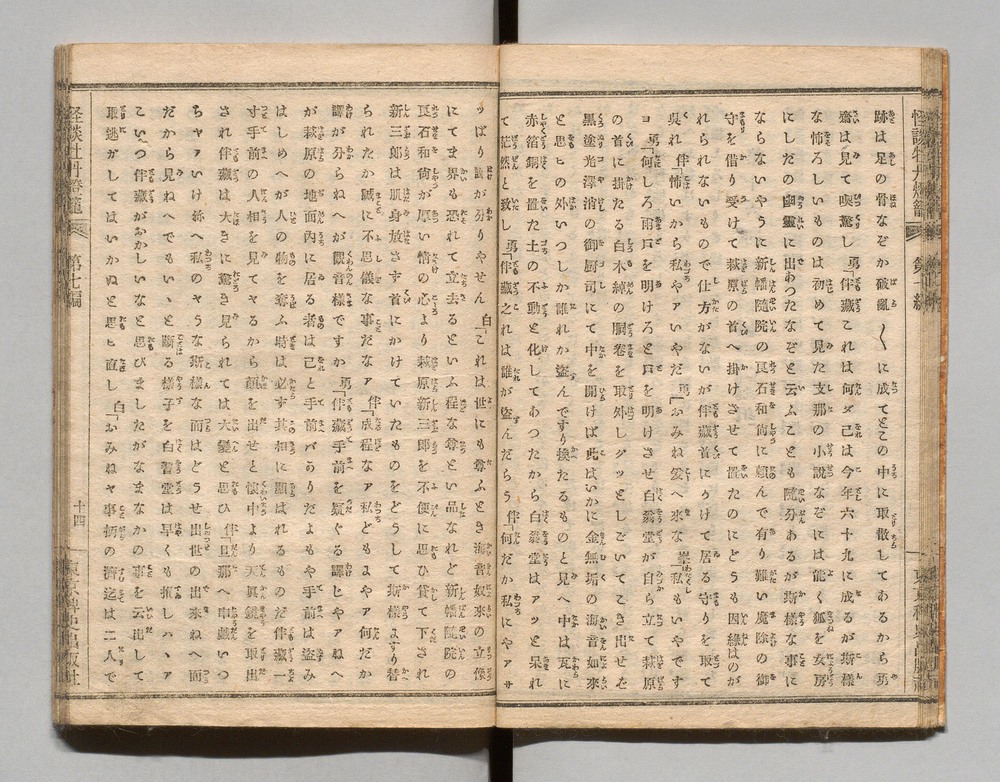 怪談牡丹燈籠
第七編
跡は足の骨なぞか破亂〳〵に成てとこの中に取散してあるから勇
齋は見て喫驚し 勇「伴藏これは何ダ己は今年六十九に成るが斯樣
な怖ろしいものは初めて見た支那の小説なぞには能く狐を女房
にしたの幽靈に出あつたなぞと云ふことも隨分あるが斯樣な事に
ならないやうに新幡隨院の良石和尚に頼んで有り難い魔除の御
守を借り受けて萩原の首へ掛けさせて置たのにどうも因縁はのが
れられないもので仕方がないが伴藏首にかけて居る守りを取て
呉れ 伴「怖いから私やァいやだ 勇「おみね爰へ來な 峯「私もいやです
ヨ 勇「何しろ雨戸を明けろと戸を明けさせ白翁堂が自ら立て萩原
の首に掛たる白木綿の胴卷を取外しグッとしごいてこき出せを
黒塗光澤消の御厨司にて中を開けば此はいかに金無垢の海音如來
と思ヒの外いつしか誰れか盜んですり換たるものと見へ中は瓦に
赤箔銅を置た土の不動と化してあつたから白翁堂はアッと呆れ
て茫然と致し 勇「伴藏之れは誰が盜んだらう 伴「何だか私にやァサ
ッぱり譯が分りやせん 白「これは世にも尊ふとき海音如來の立像
にてま界も恐れて立去るといふ程な尊とい品なれど新幡隨院の
良石和尚が厚い情の心より萩原新三郎を不便に思ひ貸て下され
新三郎は肌身放さず首にかけていたものをどうして斯樣にすり替
られたか誠に不思儀な事だなァ 伴「成程なァ私どもにやァ何だか
譯が分らねへが觀音樣ですか 勇「伴藏手前を疑ぐる譯じやァねへ
が萩原の地面内に居る者は己と手前バありだよもや手前は盜み
はしめへが人の物を奪ふ時は必ず其相に顯はれるものだ伴藏一
寸手前の人相を見てヤるから顔を出せと懷中より天眼鏡を取出
され伴藏は大きに驚き見られては大變と思ひ 伴「旦那へ串戯いつ
ちャァいけね へ私のヤうな斯樣な面はどうせ出世の出來ねへ面
だから見ねへでもいゝと斷る樣子を白翁堂は早くも推しハヽァ
こいつ伴藏がおかしいなと思ひましたがなまなかの事を云出して
取逃がしてはいかぬと思ヒ直し 白「おみねヤ事柄の濟迄は二人で
怪談牡丹燈籠
第七編
十四
東京稗史出版社